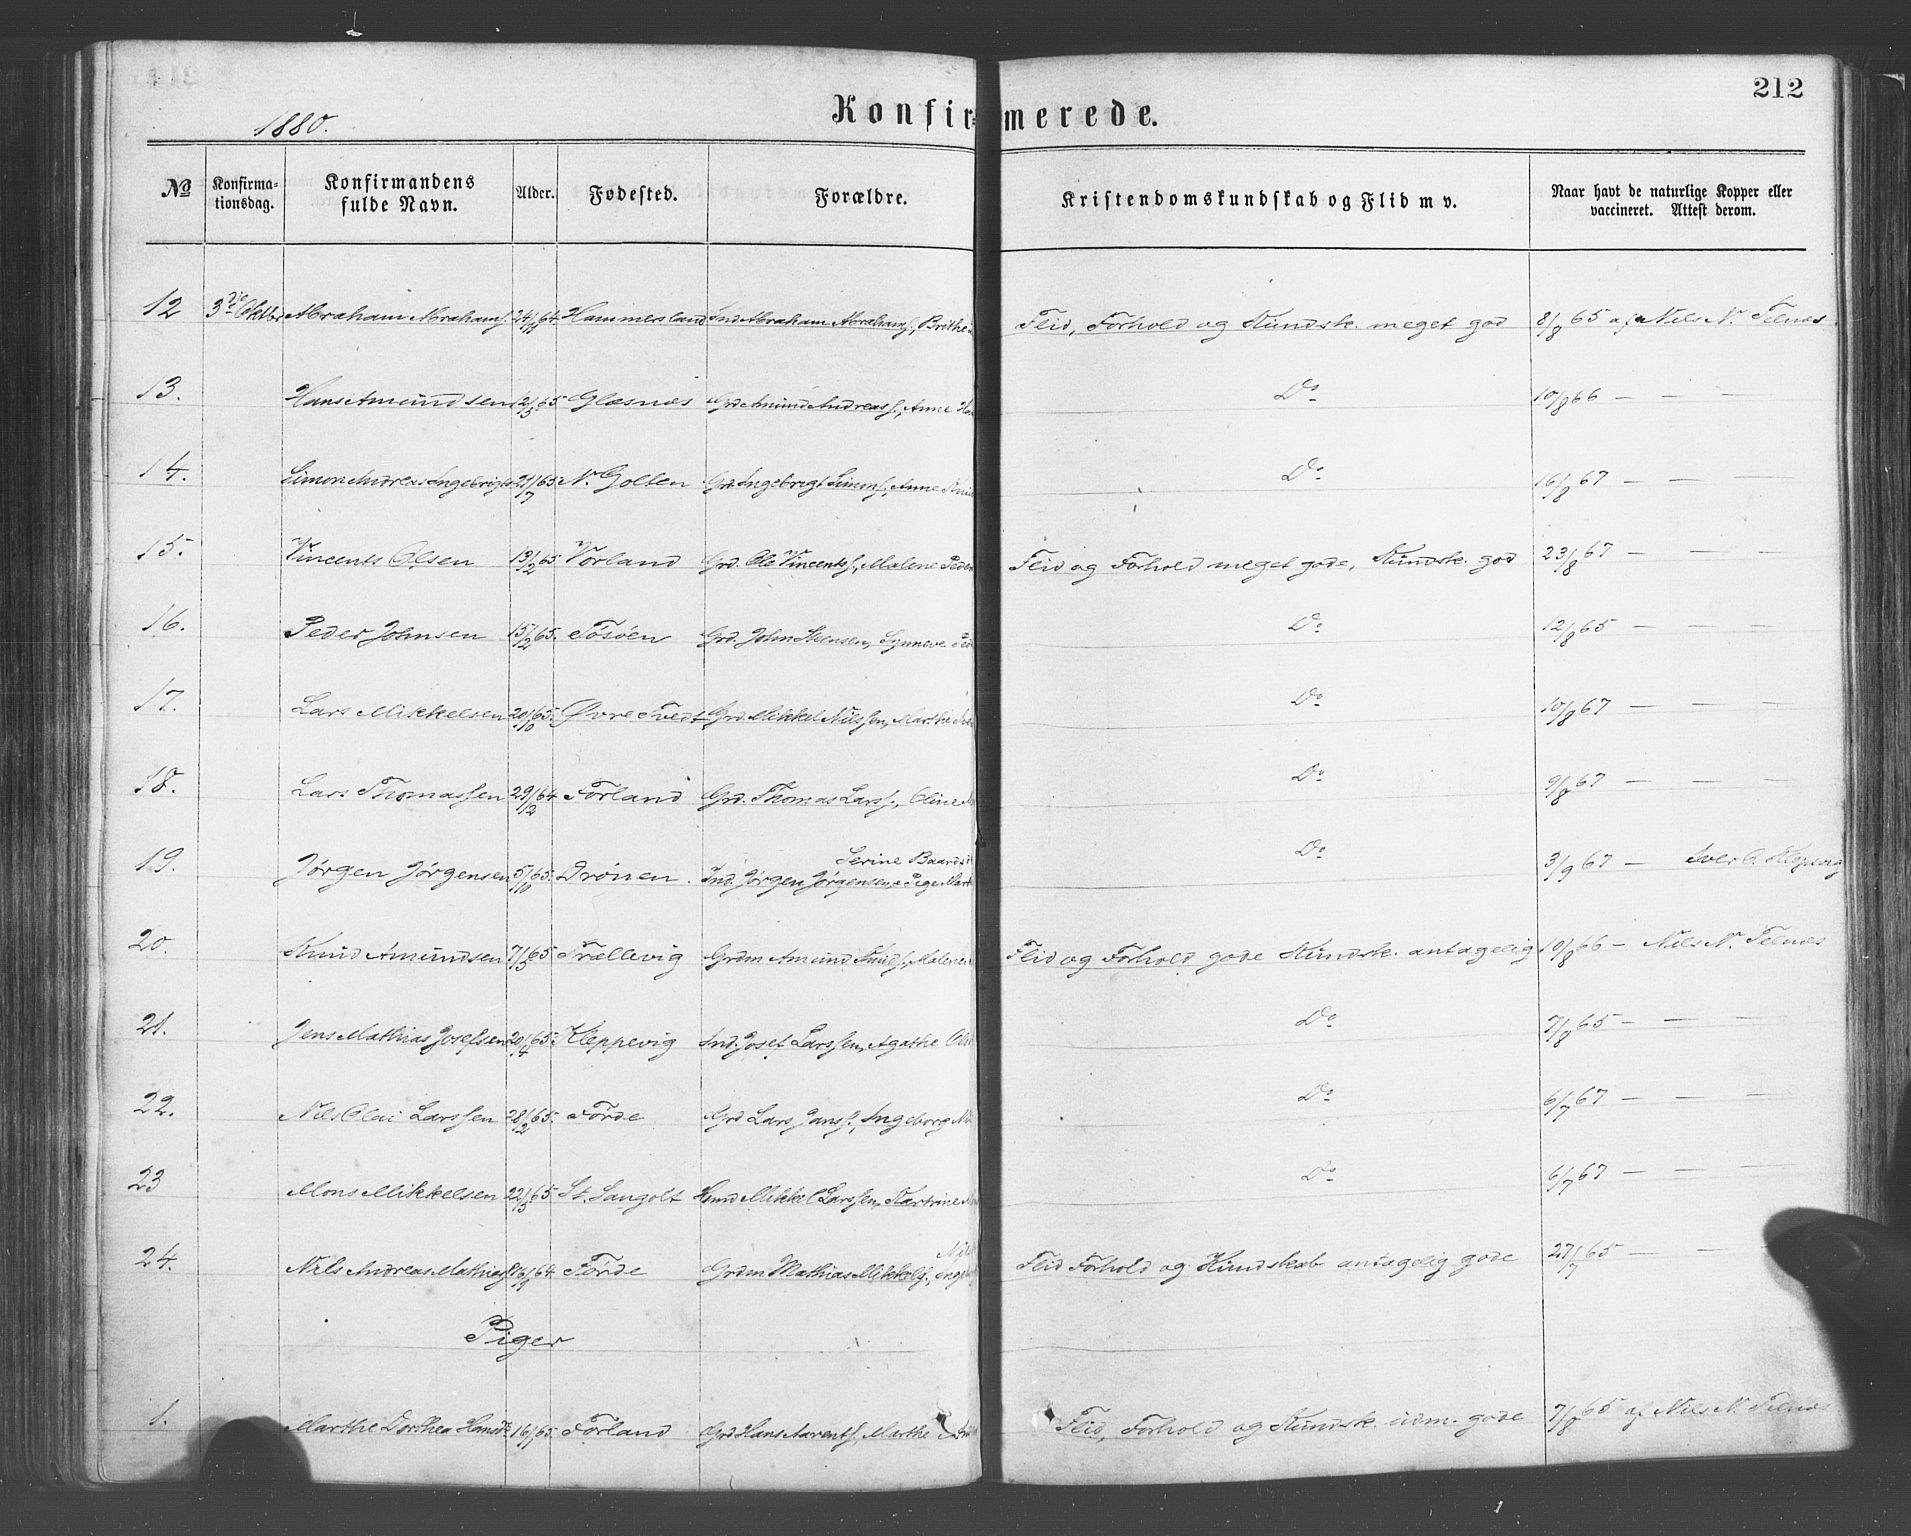 212
1880.
Konfirmerede.
No Konfirma-tionsdag. Konfirmandens fulde Navn. Alder. Fødested. Forældre. Kristendomskundskab og Flid m v. Naar havt de naturlige Kopper eller vaccineret. Attest derom.
12 3die Oktbr Abraham Abrahams. 24/64 Hammersland Ind Abraham Abrahams., Brithe Flid, Forhold og Kundsk. meget god 8/8 65 af Nils N. Telnæs
13. Hans Amundsen 12/5 65 Glæsnæs Grd Amund Andreass., Anne Do 10/8 66 — — —
14. Simon Andreas Ingebrigts 21/7 65 N. Golten Grd Ingebrigt Simons., Anne Do 16/8 67 — — —
15. Vincents Olsen 13/2 65 Vorland Grd. Ole Vincents., Malene Peder Flid og Forhold meget gode, Kundsk. god 23/8 67 — — —
16. Peder Johnsen 15/2 65. Tøsøen Grd. John Steensen, Synneve Ped Do 12/8 65 — — —
17. Lars Mikkelsen 20/10 65. Øvre Tvedt Grd. Mikkel Nilssen, Marthe Iver Do 10/8 67 — — —
18. Lars Thomassen 29/12 64 Førland Grd. Thomas Larss., Oline Do 9/8 67 — — —
19. Jørgen Jørgensen 5/10 65. Drønen. Ind. Jørgen Jørgensen, Pige Mart Do 3/9 67 — Iver O. Klepsvig
Serine Baards
20. Knud Amundsen 7/5 65 Trællevig Grdm Amund Knuds., Malene Flid og Forhold gode Kundsk. antagelig 10/8 66 — Nils N. Telnæs
21. Jens Mathias Josefsen 20/4 65. Kleppevig Ind. Josef Larssen, Agathe Ols Do 7/8 65 — — —
22. Nils Olai Larssen 28/2 65. Førde Grd Lars Jans., Ingeborg Do 6/7 67 — — —
23 Mons Mikkelsen 22/5 65 St. Sangolt Huusd Mikkel Larssen, Kartrine Do 6/7 67 — — —
24. Nils Andreas Mathias 16/64. Førde Grdm Mathias Mikkels., Inge Flid Forhold og Kundskab antagelig gode 27/7 65 — — —
Piger
1. Marthe Dorthea Hansdtr 16/65. Førland Grd Hans Aarents., Marthe Flid, Forhold og Kundsk. udm. gode 7/8 65 af Nils N. Telnæs